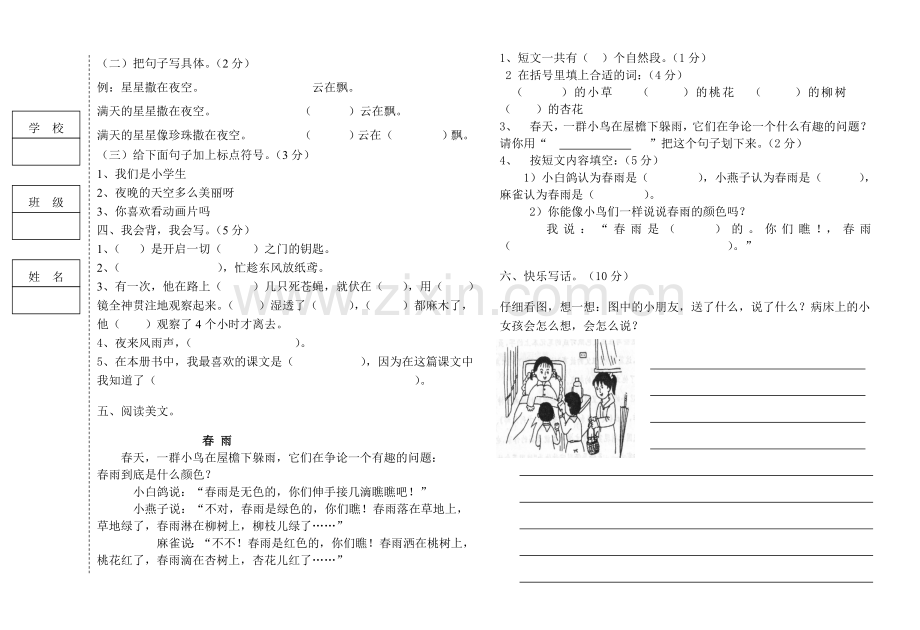 学 校
班 级
姓 名
（二）把句子写具体。（2分）
例：星星撒在夜空。 云在飘。
满天的星星撒在夜空。 （ ）云在飘。
满天的星星像珍珠撒在夜空。 （ ）云在（ ）飘。
（三）给下面句子加上标点符号。（3分）
1、我们是小学生
2、夜晚的天空多么美丽呀
3、你喜欢看动画片吗
四、我会背，我会写。（5分）
1、（ ）是开启一切（ ）之门的钥匙。
2、（ ），忙趁东风放纸鸢。
3、有一次，他在路上（ ）几只死苍蝇，就伏在（ ），用（ ）
镜全神贯注地观察起来。（ ）湿透了（ ），（ ）都麻木了，
他（ ）观察了4个小时才离去。
4、夜来风雨声，（ ）。
5、在本册书中，我最喜欢的课文是（ ），因为在这篇课文中
我知道了（ ）。
五、阅读美文。
春 雨
春天，一群小鸟在屋檐下躲雨，它们在争论一个有趣的问题：
春雨到底是什么颜色？
小白鸽说：“春雨是无色的，你们伸手接几滴瞧瞧吧！”
小燕子说：“不对，春雨是绿色的，你们瞧！春雨落在草地上，
草地绿了，春雨淋在柳树上，柳枝儿绿了……”
麻雀说：“不不！春雨是红色的，你们瞧！春雨洒在桃树上，
桃花红了，春雨滴在杏树上，杏花儿红了……”
1、短文一共有（ ）个自然段。（1分）
2 在括号里填上合适的词：（4分）
（ ）的小草 （ ）的桃花 （ ）的柳树
（ ）的杏花
3、 春天，一群小鸟在屋檐下躲雨，它们在争论一个什么有趣的问题？
请你用“ ”把这个句子划下来。（2分）
4、 按短文内容填空：（5分）
1）小白鸽认为春雨是（ ），小燕子认为春雨是（ ），
麻雀认为春雨是（ ）。
2）你能像小鸟们一样说说春雨的颜色吗？
我说：“春雨是（ ）的。你们瞧！，春雨
（ ）。”
六、快乐写话。（10分）
仔细看图，想一想：图中的小朋友，送了什么，说了什么？病床上的小
女孩会怎么想，会怎么说？
www.zixin.com.cn